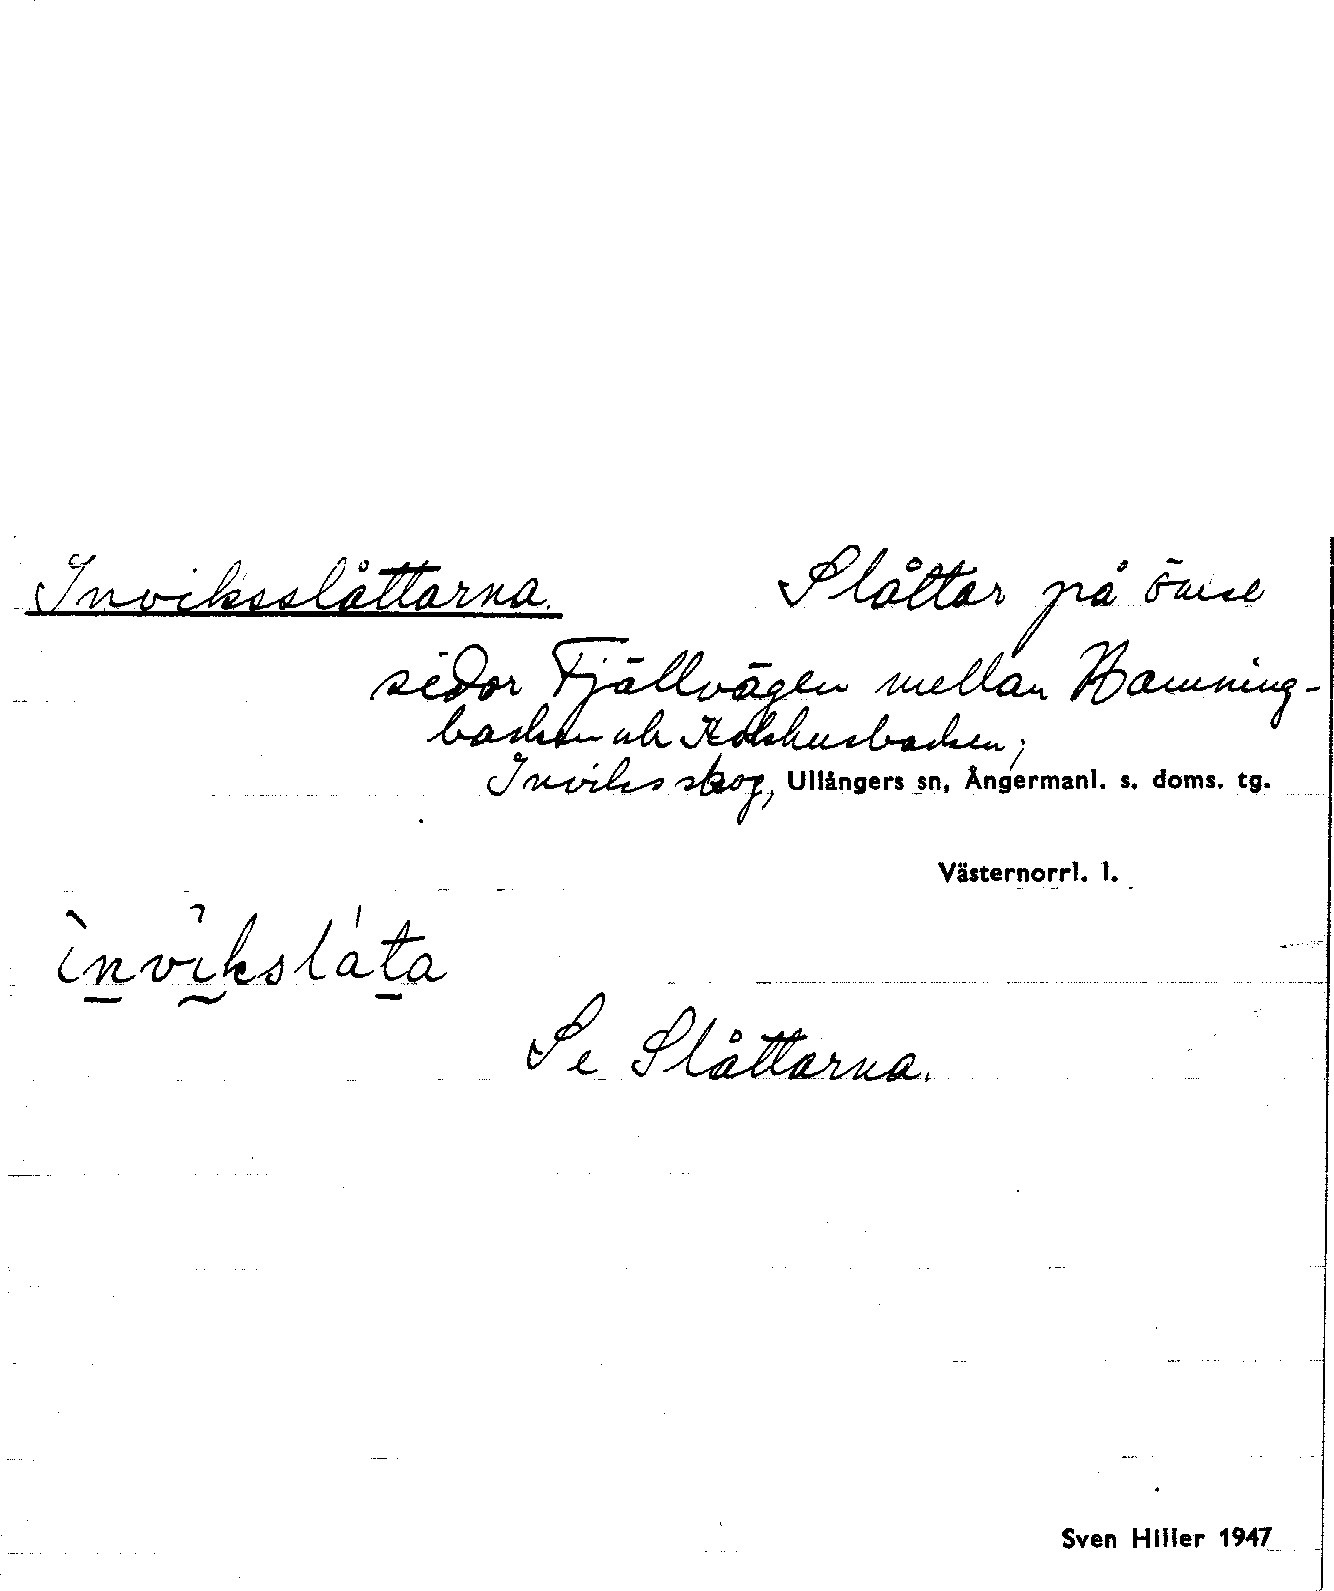 Inviksslåttarna. Slåttar på ömse
sidor Fjällvägen mellan Hamning-
backen och Kokhusbacken;
Inviks skog, Ullångers sn, Ångermanl. s. doms. tg.
Västernorrl. l.
Se Slåttarna.
Sven Hiller 1947